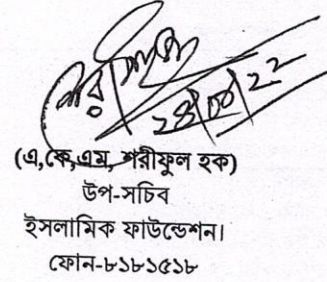 (এ,কে,এম, শরীফুল হক)
উপ-সচিব
ইসলামিক ফাউন্ডেশন।
ফোন-৮১৮১৫১৮